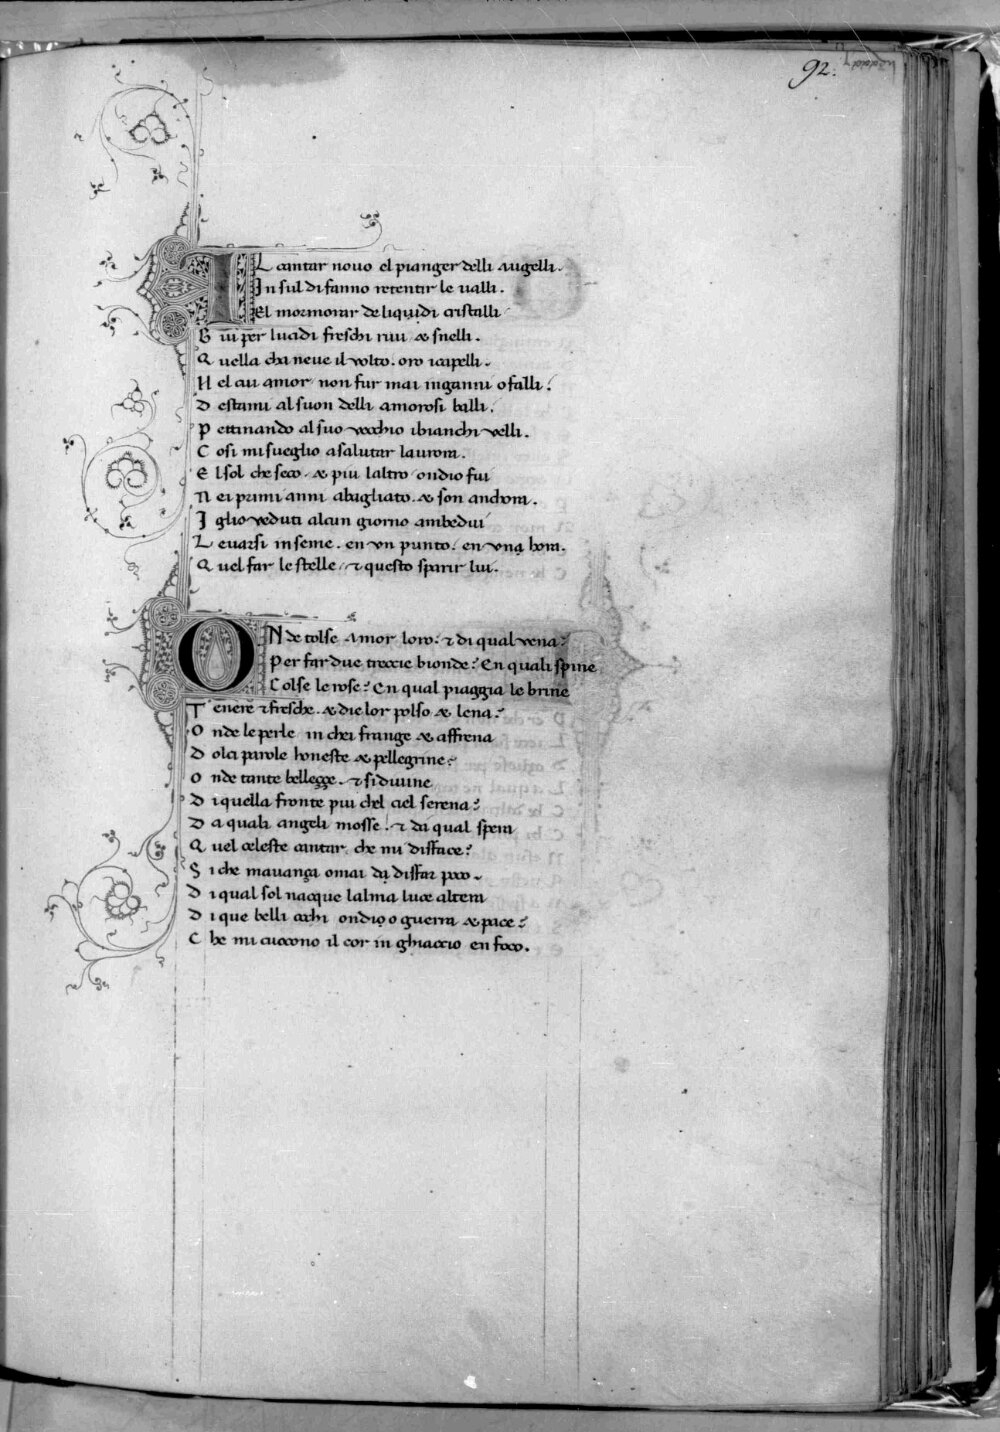 92.
IL cantar novo el pianger delli augelli.
In sul di fanno retentir le valli.
El mormorar de liquidi cristalli
G iu per lucidi freschi rivi & snelli.
Q uella cha neve il volto. oro icapelli.
N el cui amor non fur mai inganni o falli.
D estami al suon delli amorosi balli.
P ettinando al suo vecchio ibianchi velli.
C osi mi sveglio a salutar laurora.
E l sol che seco. & piu laltro ondio fui
N ei primi anni abagliato. & son anchora.
I gli o veduti alcun giorno ambedui
L evarsi inseme. en un punto. en una hora.
Q uel far le stelle. & questo sparir lui.
ONde tolse Amor loro. & di qual vena?
Per far due treccie bionde? En quali spine
Colse le rose? En qual piaggia le brine
T enere & fresche. & die lor polso & lena?
O nde le perle in chei frange & affrena
D olci parole honeste & pellegrine?
O nde tante bellezze. & si divine
D i quella fronte piu chel ciel serena?
D a quali angeli mosse. & da qual spera
Q uel celeste cantar. che mi disface?
S i che mavanza omai da disfar poco.
D i qual sol nacque lalma luce altera
D i que belli occhi ondio o guerra & pace?
C he mi cuocono il cor in ghiaccio en foco.